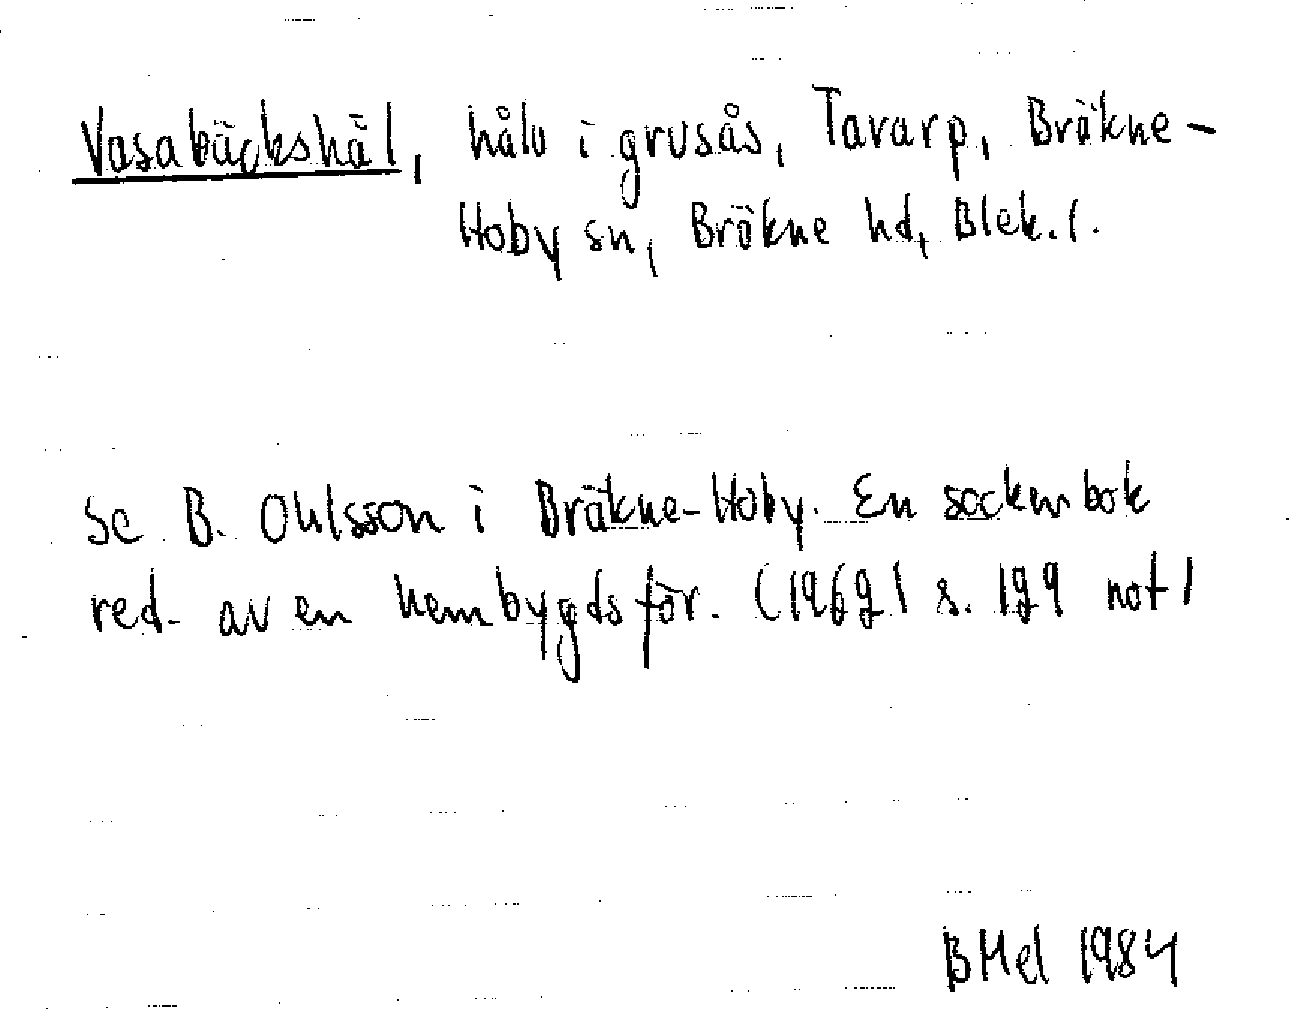 Vasabäckshål, hålv i grusås, Tararp, Bräkne-
Hoby sn, Bräkne hd, Blek. l.
Se B. Ohlsson i Bräkne-Hoby. En sockenbok
red. av en hembygdsför. (1962) s. 199 not 1
BMel 1984